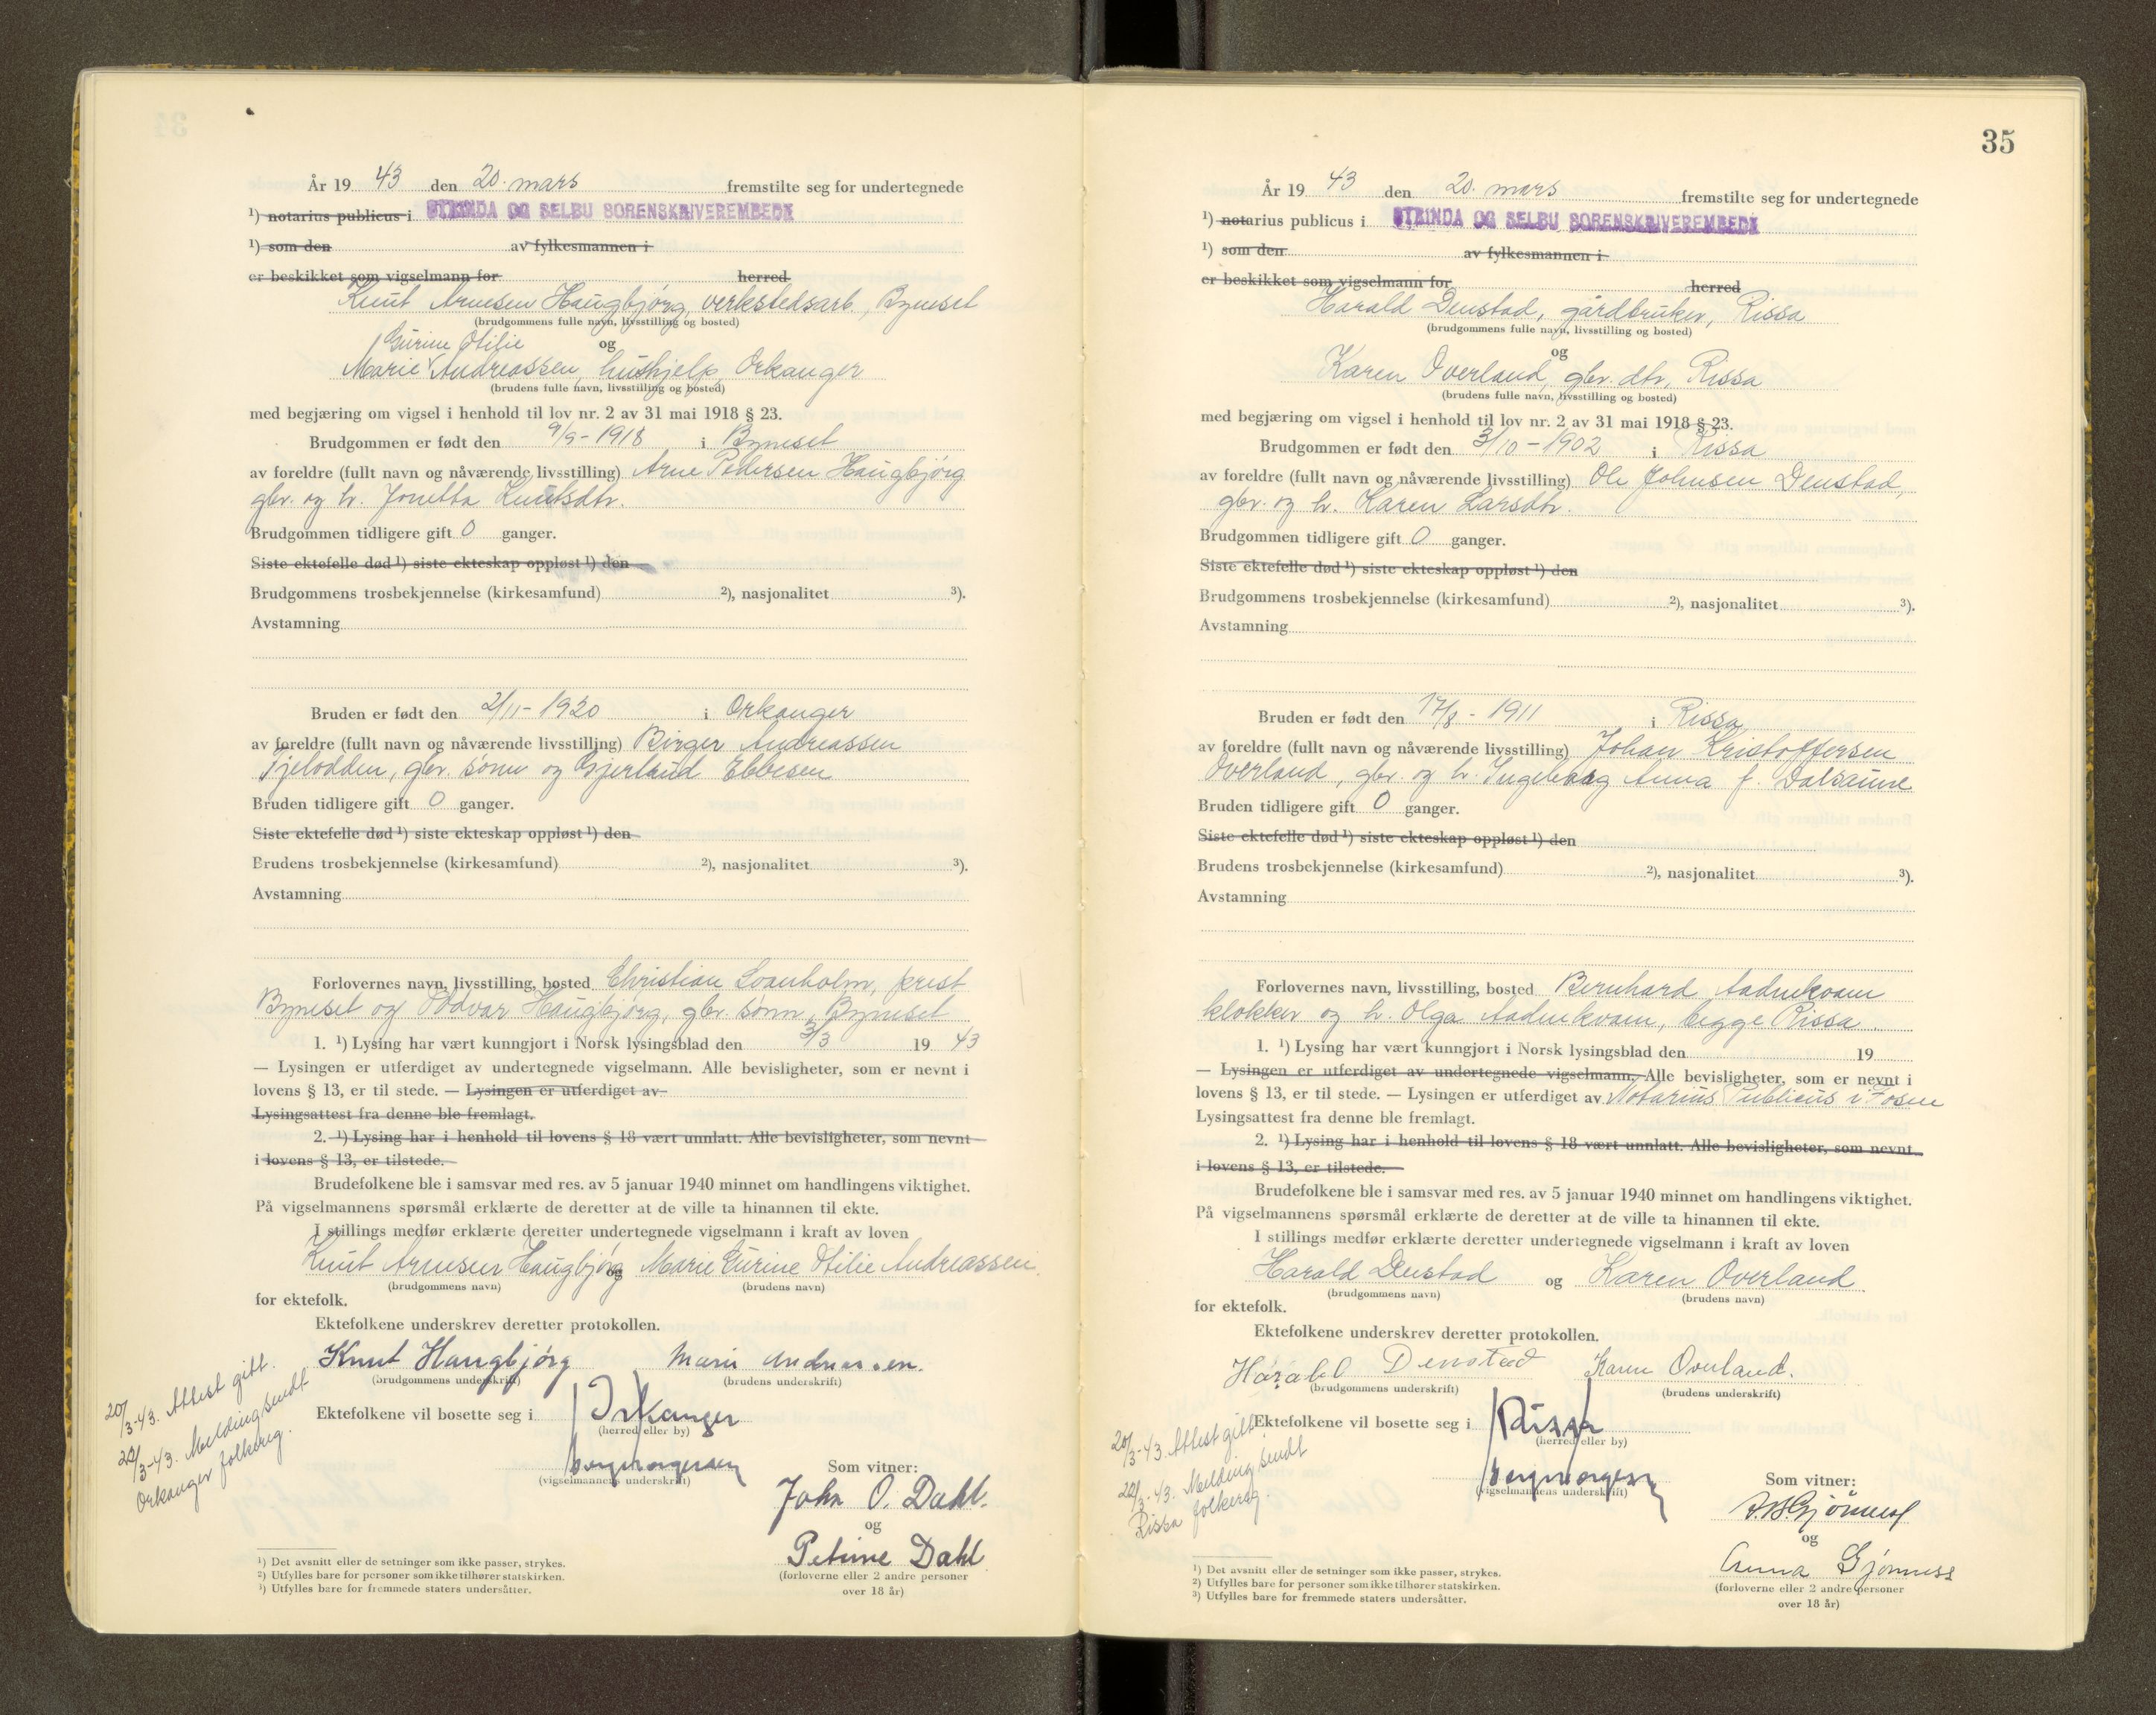 År 19 43 den 20. mars fremstilte seg for undertegnede
¹) notarius publicus i STRINDA OG SELBU SORENSKRIVEREMBEDE
¹) som den av fylkesmannen i
er beskikket som vigselmann for herred
Knut Arnesen Haugbjørg, verkstedsarb., Byneset
(brudgommens fulle navn, livsstilling og bosted)
Gurine Otilie
og
Marie Andreassen, hushjelp, Orkanger
(brudens fulle navn, livsstilling og bosted)
med begjæring om vigsel i henhold til lov nr. 2 av 31 mai 1918 § 23.
Brudgommen er født den 9/9-1918 i Byneset
av foreldre (fullt navn og nåværende livsstilling) Arne Pedersen Haugbjørg
gbr. og h. Jonetta Knutsdtr.
Brudgommen tidligere gift 0 ganger.
Siste ektefelle død ¹) siste ekteskap oppløst ¹) den
Brudgommens trosbekjennelse (kirkesamfund) ²), nasjonalitet ³).
Avstamning
Bruden er født den 2/11-1920 i Orkanger
av foreldre (fullt navn og nåværende livsstilling) Birger Andreassen
gbr. sønn og Ebbesen
Bruden tidligere gift 0 ganger.
Siste ektefelle død ¹) siste ekteskap oppløst ¹) den
Brudens trosbekjennelse (kirkesamfund) ²), nasjonalitet ³).
Avstamning
Forlovernes navn, livsstilling, bosted Christian Svanholm, prest
Byneset og Oddvar Haugbjørg, gbr. sønn, Byneset
1. ¹) Lysing har vært kunngjort i Norsk lysingsblad den 3/3 19 43
— Lysingen er utferdiget av undertegnede vigselmann. Alle bevisligheter, som er nevnt i
lovens § 13, er til stede. — Lysingen er utferdiget av
Lysingsattest fra denne ble fremlagt.
2. ¹) Lysing har i henhold til lovens § 18 vært unnlatt. Alle bevisligheter, som nevnt
i lovens § 13, er tilstede.
Brudefolkene ble i samsvar med res. av 5 januar 1940 minnet om handlingens viktighet.
På vigselmannens spørsmål erklærte de deretter at de ville ta hinannen til ekte.
I stillings medfør erklærte deretter undertegnede vigselmann i kraft av loven
Knut Arnesen Haugbjørg og Marie Gurine Otilie Andreassen
(brudgommens navn) (brudens navn)
for ektefolk.
Ektefolkene underskrev deretter protokollen.
Knut Haugbjørg Marie Andreassen.
(brudgommens underskrift) (brudens underskrift)
Ektefolkene vil bosette seg i Orkanger
(herred eller by)
(vigselmannens underskrift)
Som vitner:
John O. Dahl.
og
Petrine Dahl
(forloverne eller 2 andre personer
over 18 år)
20/3-43. Attest gitt.
20/3-43. Melding sendt
Orkanger folkereg.
¹) Det avsnitt eller de setninger som ikke passer, strykes.
²) Utfylles bare for personer som ikke tilhører statskirken.
³) Utfylles bare for fremmede staters undersåtter.
35
År 19 43 den 20. mars fremstilte seg for undertegnede
¹) notarius publicus i STRINDA OG SELBU SORENSKRIVEREMBEDE
¹) som den av fylkesmannen i
er beskikket som vigselmann for herred
Harald Denstad, gårdbruker, Rissa
(brudgommens fulle navn, livsstilling og bosted)
og
Karen Overland, gbr. dtr., Rissa
(brudens fulle navn, livsstilling og bosted)
med begjæring om vigsel i henhold til lov nr. 2 av 31 mai 1918 § 23.
Brudgommen er født den 3/10-1902 i Rissa
av foreldre (fullt navn og nåværende livsstilling) Ole Johnsen Denstad,
gbr. og h. Karen Larsdtr.
Brudgommen tidligere gift 0 ganger.
Siste ektefelle død ¹) siste ekteskap oppløst ¹) den
Brudgommens trosbekjennelse (kirkesamfund) ²), nasjonalitet ³).
Avstamning
Bruden er født den 17/8-1911 i Rissa
av foreldre (fullt navn og nåværende livsstilling) Johan Kristoffersen
Overland, gbr. og h. Ingeborg Anna f. Dalsaune
Bruden tidligere gift 0 ganger.
Siste ektefelle død ¹) siste ekteskap oppløst ¹) den
Brudens trosbekjennelse (kirkesamfund) ²), nasjonalitet ³).
Avstamning
Forlovernes navn, livsstilling, bosted Bernhard Aadnekvam
klokker og h. Olga Aadnekvam, begge Rissa
1. ¹) Lysing har vært kunngjort i Norsk lysingsblad den 19
— Lysingen er utferdiget av undertegnede vigselmann. Alle bevisligheter, som er nevnt i
lovens § 13, er til stede. — Lysingen er utferdiget av Notarius Publicus i Fosen
Lysingsattest fra denne ble fremlagt.
2. ¹) Lysing har i henhold til lovens § 18 vært unnlatt. Alle bevisligheter, som nevnt
i lovens § 13, er tilstede.
Brudefolkene ble i samsvar med res. av 5 januar 1940 minnet om handlingens viktighet.
På vigselmannens spørsmål erklærte de deretter at de ville ta hinannen til ekte.
I stillings medfør erklærte deretter undertegnede vigselmann i kraft av loven
Harald Denstad og Karen Overland
(brudgommens navn) (brudens navn)
for ektefolk.
Ektefolkene underskrev deretter protokollen.
Harald Denstad Karen Overland.
(brudgommens underskrift) (brudens underskrift)
Ektefolkene vil bosette seg i Rissa
(herred eller by)
(vigselmannens underskrift)
Som vitner:
og
Anna Gjønness
(forloverne eller 2 andre personer
over 18 år)
20/3-43. Attest gitt.
20/3-43. Melding sendt
Rissa folkereg.
¹) Det avsnitt eller de setninger som ikke passer, strykes.
²) Utfylles bare for personer som ikke tilhører statskirken.
³) Utfylles bare for fremmede staters undersåtter.